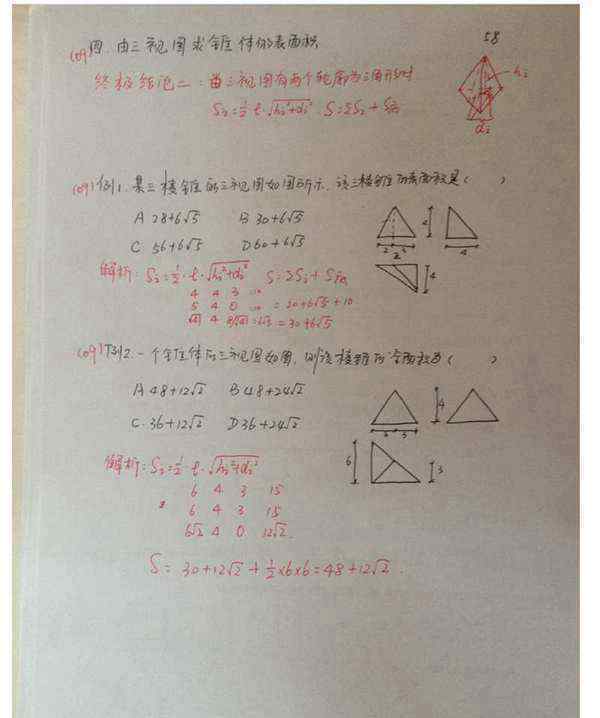 58
(09) 四. 由三视图求锥体的表面积
终极结论二: 由三视图有两个轮廓为三角形时
S₂=½·t·√(h₂²+d₂²) S=ΣS₂+S底
h₂
d₂
(09) 例1. 某三棱锥的三视图如图所示, 该三棱锥的表面积是( )
A 28+6√5 B 30+6√5
C 56+6√5 D 60+6√5
4 4
2 3
4
解析: S₂=½·t·√(h₂²+d₂²) S=ΣS₂+S底
4 4 3 10
5 4 0 10 =20+6√5+10
√41 4 8/√41 6√5 =30+6√5
(09) 例2. 一个锥体的三视图如图, 则该棱锥的全面积为( )
A 48+12√2 B 48+24√2
C. 36+12√2 D 36+24√2
4
3 3
6 3
解析: S₂=½·t·√(h₂²+d₂²)
6 4 3 15
6 4 3 15
6√2 4 0 12√2
S= 30+12√2+½×6×6=48+12√2.